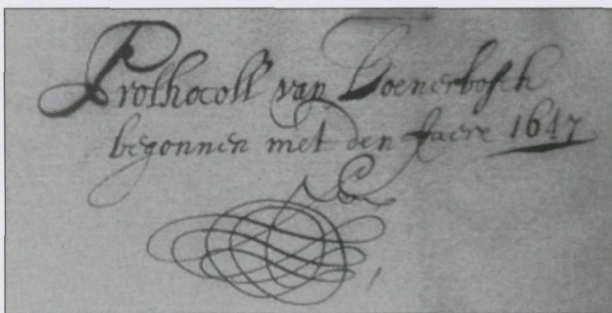 Prothocoll van Loenerbosch
begonnen met den Jaere 1647